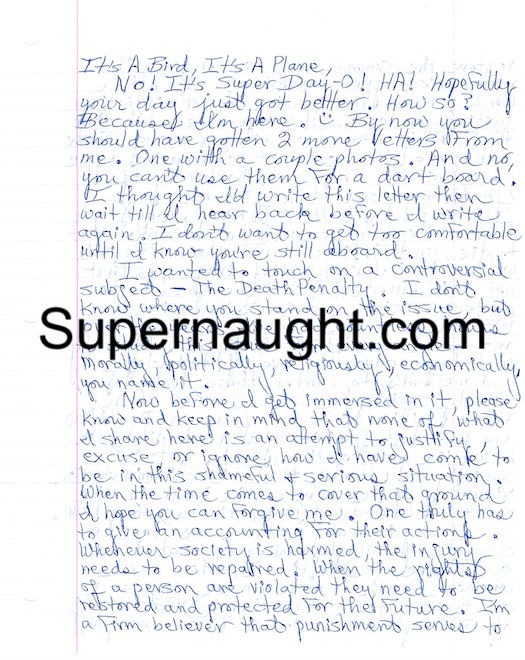 It's A Bird, It's A Plane,
No! It's Super Day-O! HA! Hopefully
your day just got better. How so?
Because I'm here. :) By now you
should have gotten 2 more letters from
me. One with a couple photos. And no,
you can't use them for a dart board.
I thought I'd write this letter then
wait till I hear back before I write
again. I don't want to get too comfortable
until I know you're still aboard.
I wanted to touch on a controversial
subject – The Death Penalty. I don't
know where you stand on the issue, but
Supernaught.com
morally, politically, religiously, economically,
you name it.
Now before I get immersed in it, please
know and keep in mind that none of what
I share here is an attempt to justify,
excuse or ignore how I have come to
be in this shameful & serious situation.
When the time comes to cover that ground
I hope you can forgive me. One truly has
to give an accounting for their actions.
Whenever society is harmed, the injury
needs to be repaired. When the rights
of a person are violated they need to be
restored and protected for the future. I'm
a firm believer that punishment serves to